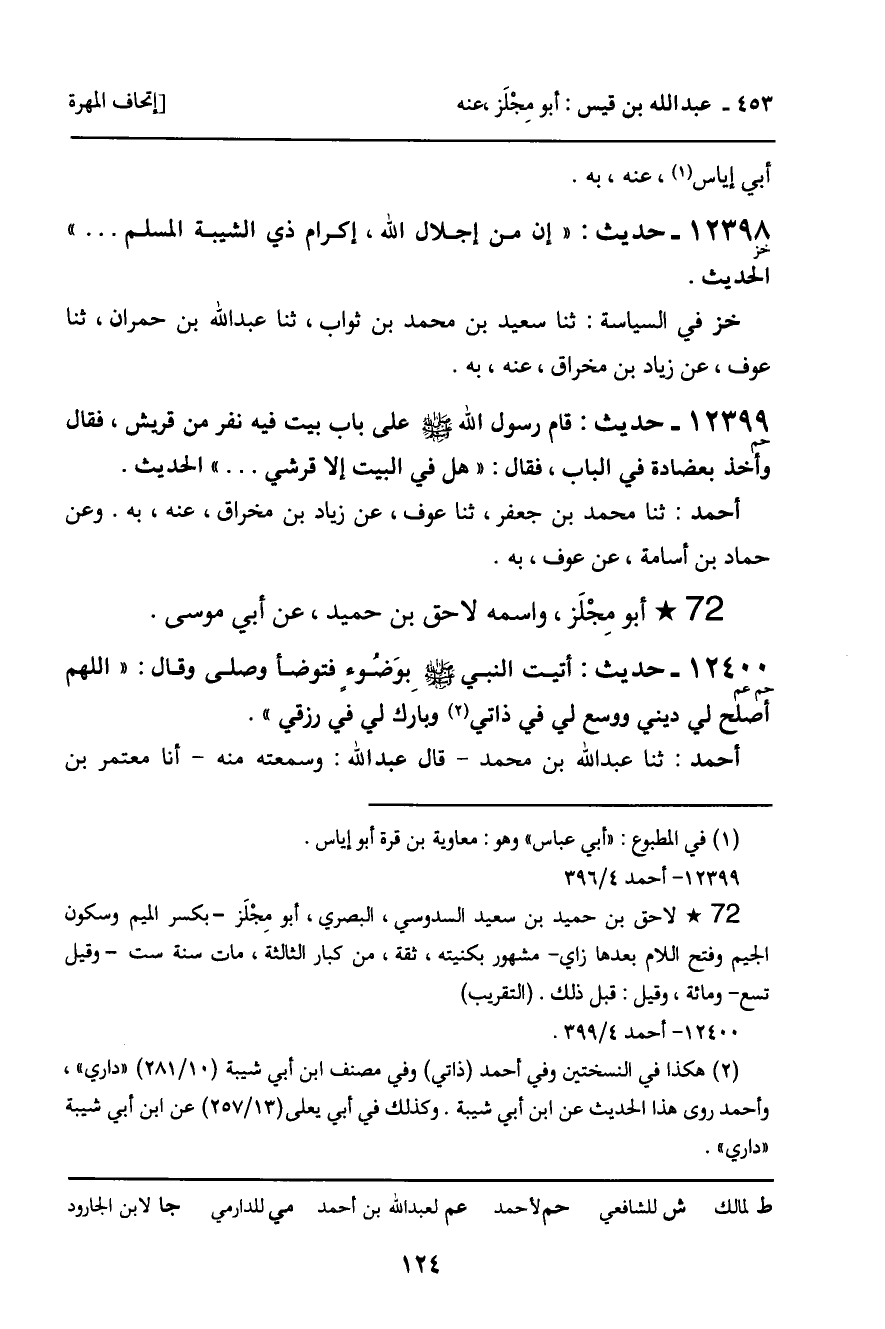 ٤٥٣ ـ عبدالله بن قيس : أبو مِجْلَز ،عنه [إتحاف المهرة
أبي إياس(١) ، عنه ، به .
١٢٣٩٨ ـ حديث : « إن من إجلال الله ، إكرام ذي الشيبة المسلم ... »
خز
الحديث .
خز في السياسة : ثنا سعيد بن محمد بن ثواب ، ثنا عبدالله بن حمران ، ثنا
عوف ، عن زياد بن مخراق ، عنه ، به .
١٢٣٩٩ ـ حديث : قام رسول الله ﷺ على باب بيت فيه نفر من قريش ، فقال
حم
وأخذ بعضادة في الباب ، فقال : « هل في البيت إلا قرشي ... » الحديث .
أحمد : ثنا محمد بن جعفر ، ثنا عوف ، عن زياد بن مخراق ، عنه ، به . وعن
حماد بن أسامة ، عن عوف ، به .
72 ★ أبو مِجْلَز ، واسمه لاحق بن حميد ، عن أبي موسى .
١٢٤٠٠ ـ حديث : أتيت النبي ﷺ بِوَضُوءٍ فتوضأ وصلى وقال : « اللهم
حم عم
أصلح لي ديني ووسع لي في ذاتي(٢) وبارك لي في رزقي » .
أحمد : ثنا عبدالله بن محمد – قال عبدالله : وسمعته منه – أنا معتمر بن
(١) في المطبوع : «أبي عباس» وهو : معاوية بن قرة أبو إياس .
١٢٣٩٩- أحمد ٣٩٦/٤
72 ★ لاحق بن حميد بن سعيد السدوسي ، البصري ، أبو مِجْلَز –بكسر الميم وسكون
الجيم وفتح اللام بعدها زاي– مشهور بكنيته ، ثقة ، من كبار الثالثة ، مات سنة ست – وقيل
تسع– ومائة ، وقيل : قبل ذلك . (التقريب)
١٢٤٠٠- أحمد ٣٩٩/٤ .
(٢) هكذا في النسختين وفي أحمد (ذاتي) وفي مصنف ابن أبي شيبة (٢٨١/١٠) «داري» ،
وأحمد روى هذا الحديث عن ابن أبي شيبة . وكذلك في أبي يعلى(٢٥٧/١٣) عن ابن أبي شيبة
«داري» .
ط لمالك ش للشافعي حم لأحمد عم لعبدالله بن أحمد مي للدارمي جا لابن الجارود
١٢٤